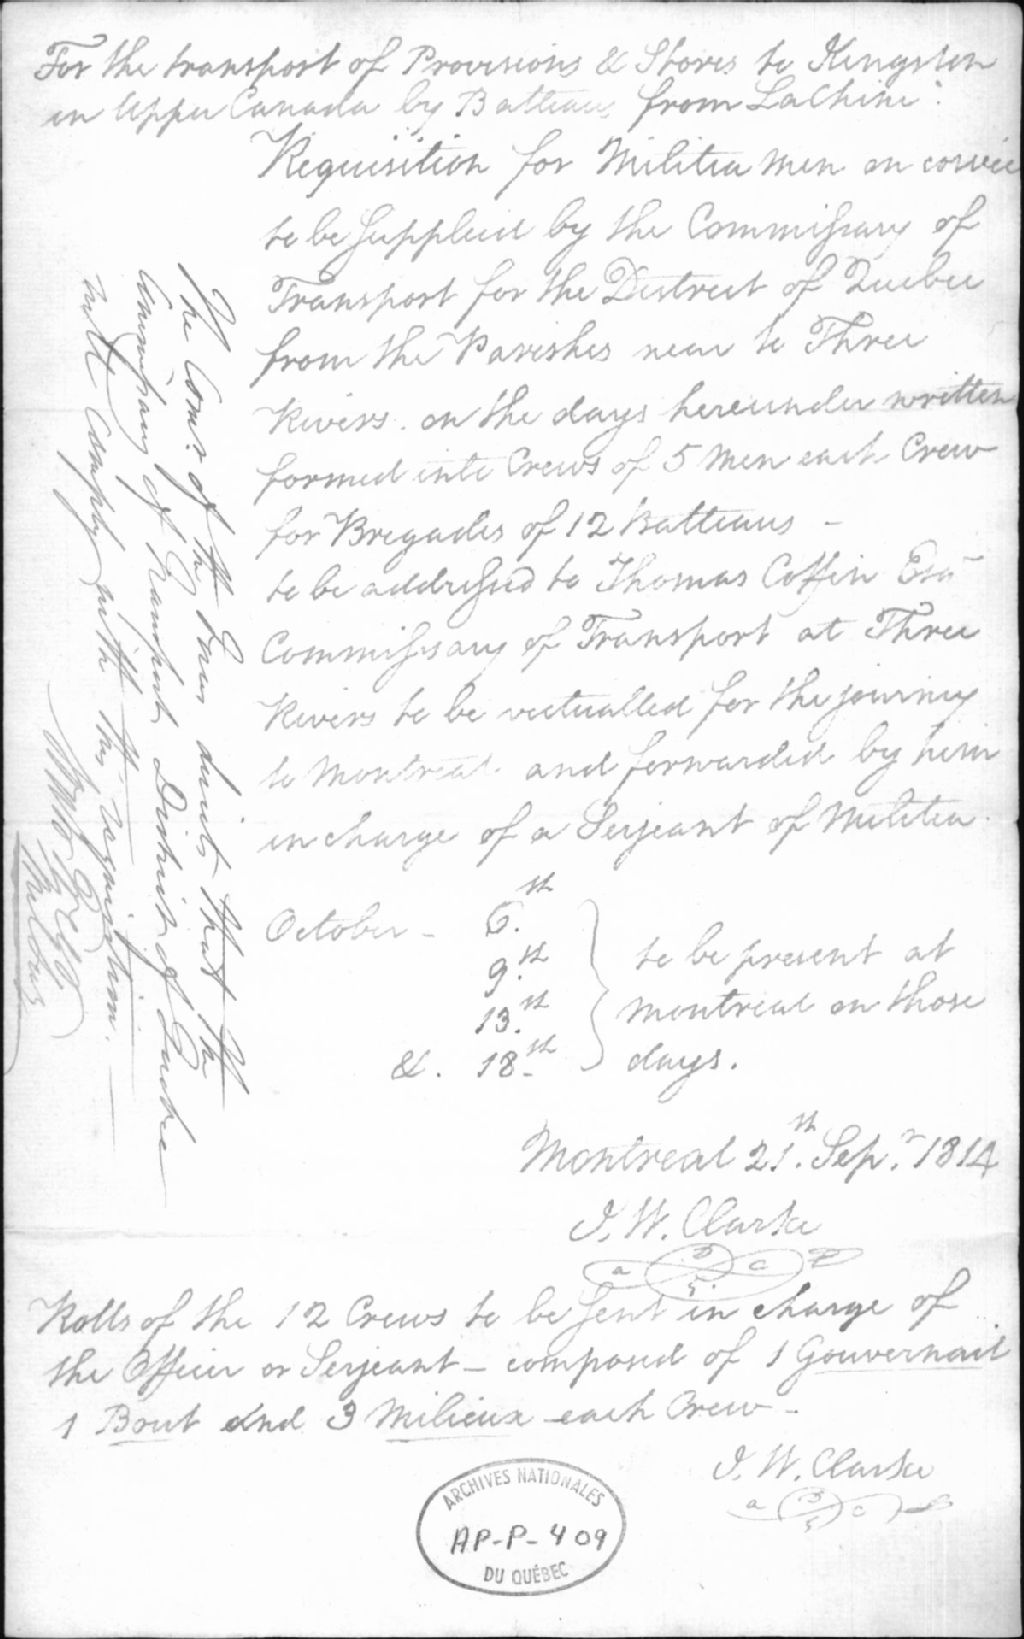 For the transport of Provisions & Stores to Kingston
in Upper Canada by Batteaux from LaChine.
Requisition for Militia men on corvée
to be supplied by the Commissary of
Transport for the District of Quebec
from the Parishes near to Three
Rivers. on the days hereunder written
formed into Crews of 5 Men each Crew
for Bregades of 12 Batteaus -
to be addressed to Thomas Coffin Esqr
Commissary of Transport at Three
Rivers to be victualled for the journey
to Montreal and forwarded by him
in charge of a Serjeant of Militia.
October - 6.st
9.st
13.st
&. 18.st
to be present at
Montreal on those
days.
Montreal 21.st Sepr. 1814
J. W. Clarke
Rolls of the 12 Crews to be sent in charge of
the Officer or Serjeant - composed of 1 Gouvernail
1 Bout and 3 Milieux each Crew -
J. W. Clarke
The Comr. of the Forces directs that the
Commissary of Transport District of Quebec
will comply with this requisition.
ARCHIVES NATIONALES
AP-P-409
DU QUÉBEC